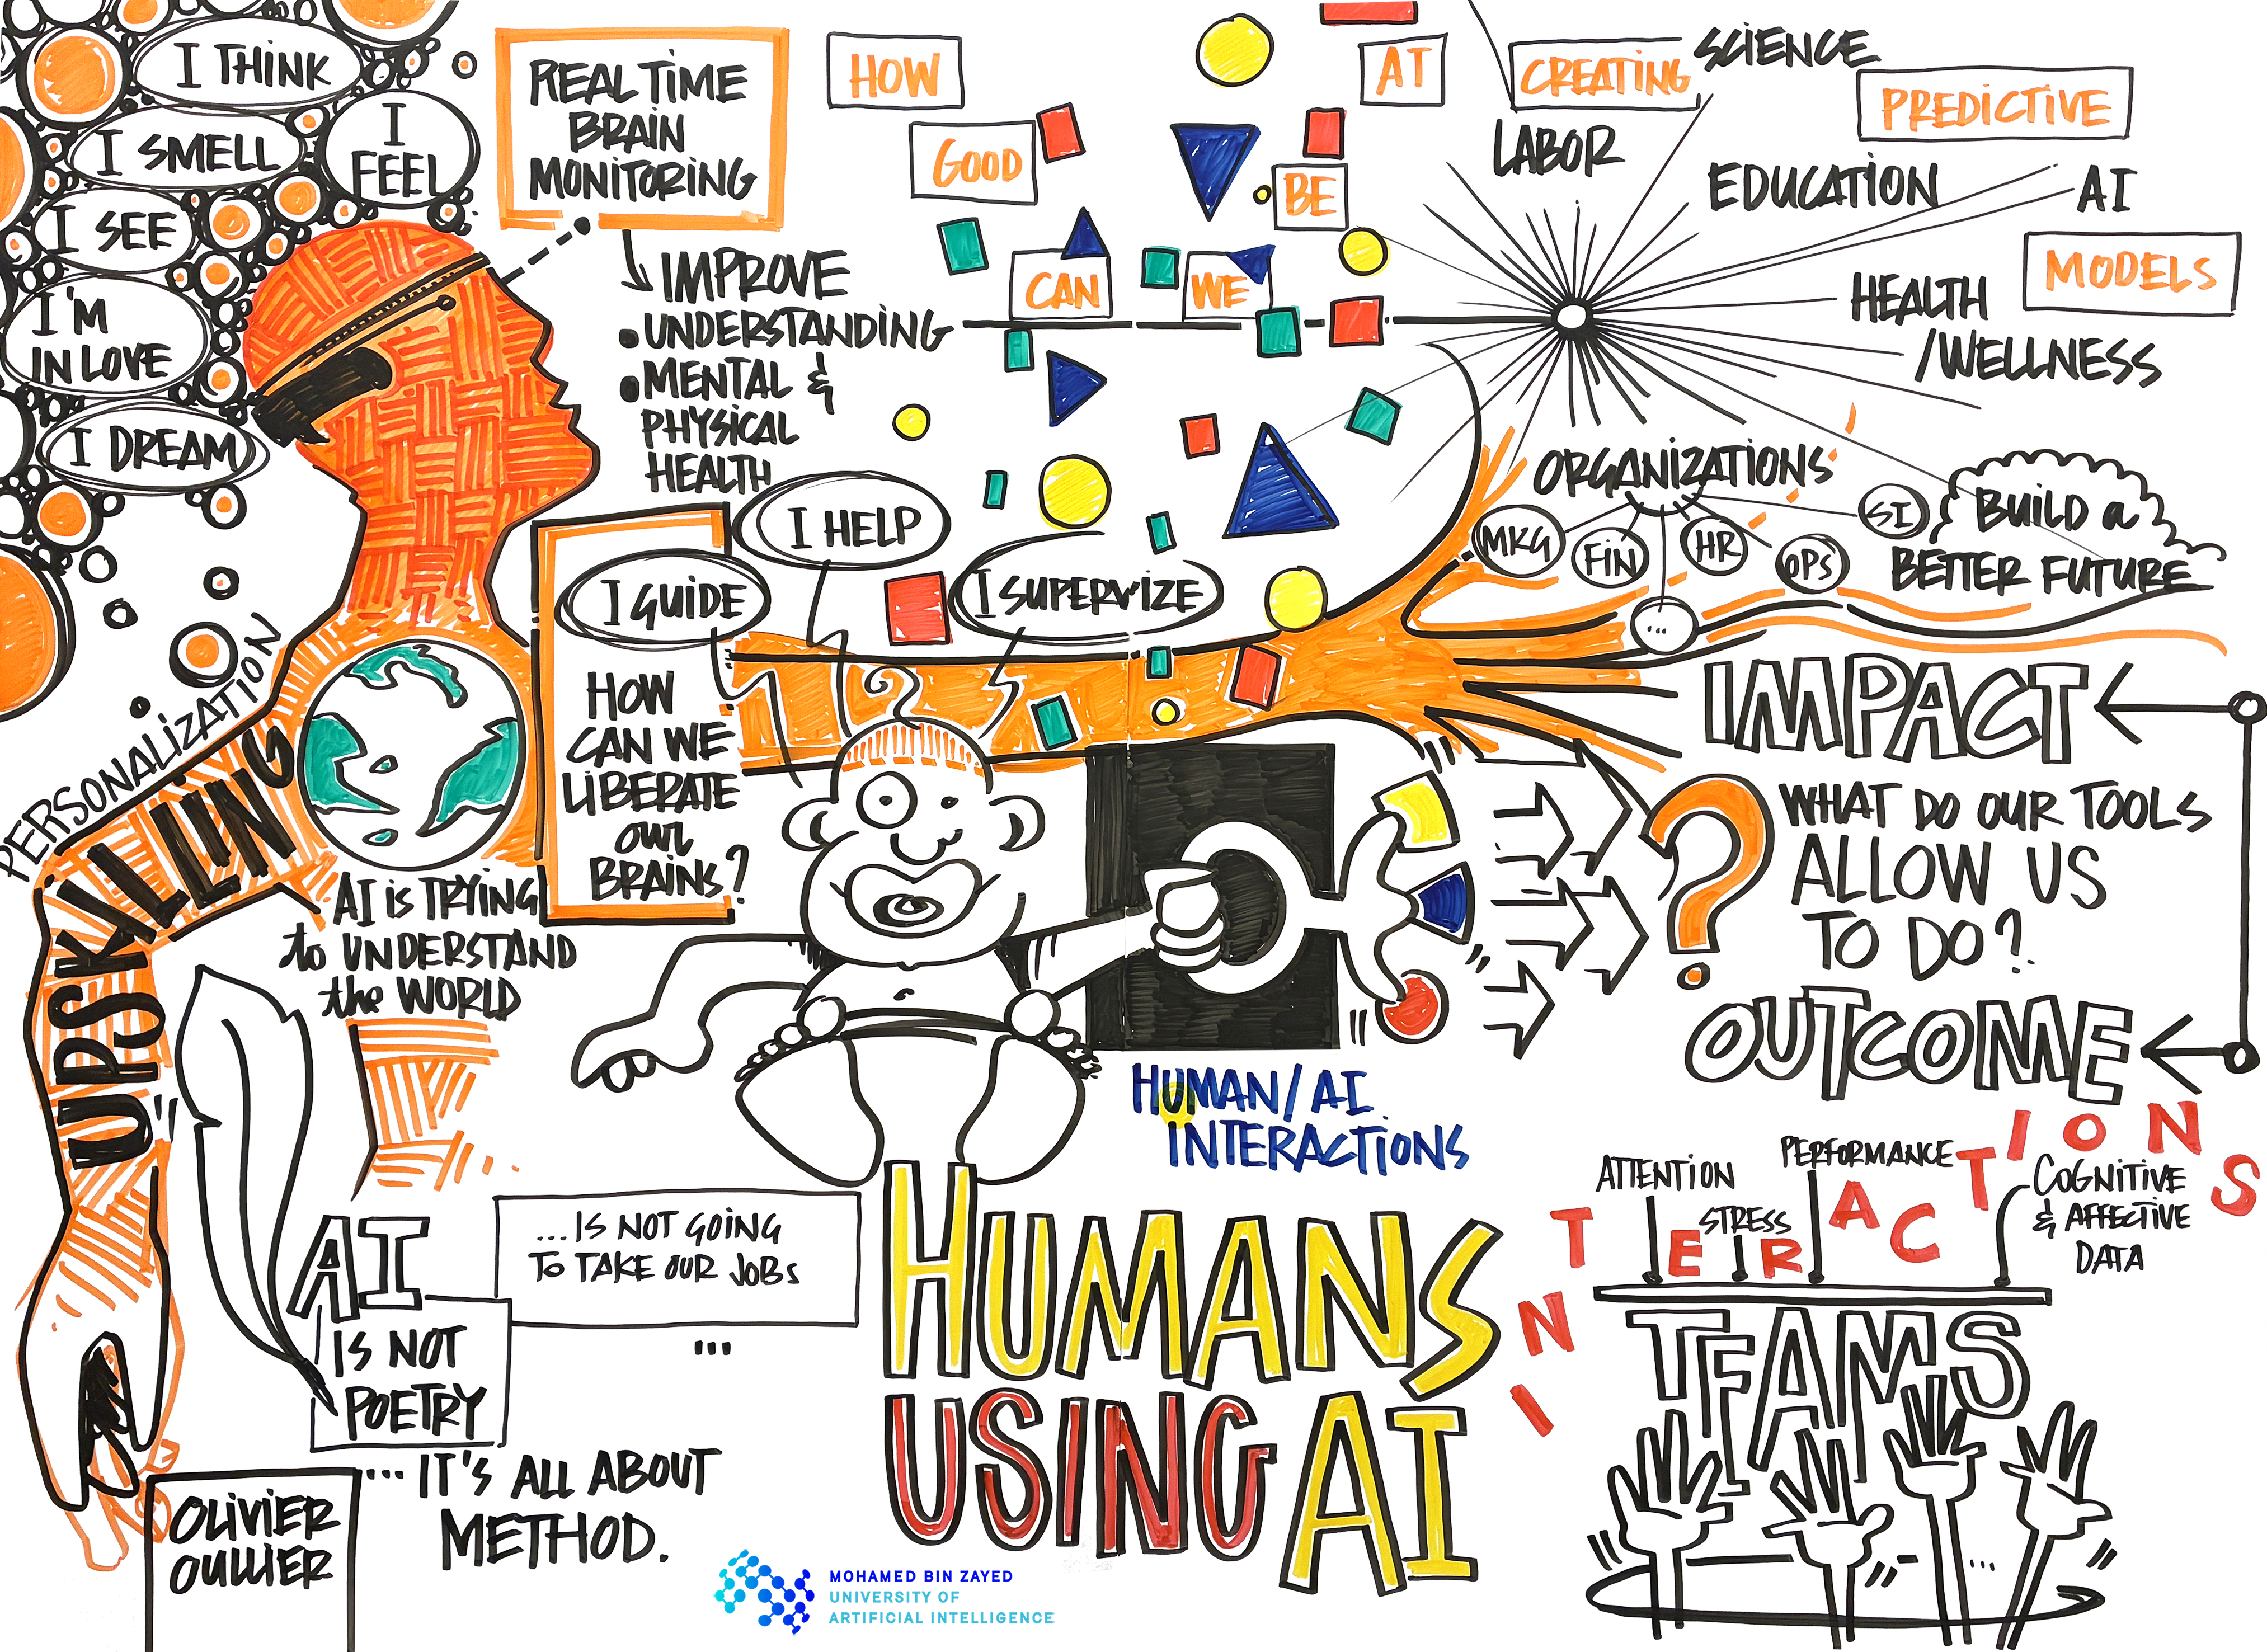 I THINK
I SMELL
I
FEEL
I SEE
I'M
IN LOVE
I DREAM
REAL TIME
BRAIN
MONITORING
IMPROVE
• UNDERSTANDING
• MENTAL &
PHYSICAL
HEALTH
HOW
GOOD
CAN
WE
BE
AT
CREATING
PREDICTIVE
AI
MODELS
SCIENCE
LABOR
EDUCATION
HEALTH
/WELLNESS
ORGANIZATIONS
MKG
FIN
...
HR
OPS
SI
BUILD a
BETTER FUTURE
I HELP
I GUIDE
I SUPERVIZE
HOW
CAN WE
LIBERATE
OUR
BRAINS?
PERSONALIZATION
UPSKILLING
AI IS TRYING
to UNDERSTAND
the WORLD
IMPACT
WHAT DO OUR TOOLS
ALLOW US
TO DO?
OUTCOME
?
HUMAN/AI
INTERACTIONS
AI
IS NOT
POETRY
...IS NOT GOING
TO TAKE OUR JOBS
...
HUMANS
USING AI
... IT'S ALL ABOUT
METHOD.
INTERACTIONS
ATTENTION
STRESS
PERFORMANCE
COGNITIVE
& AFFECTIVE
DATA
TEAMS
...
OLIVIER
OULLIER
MOHAMED BIN ZAYED
UNIVERSITY OF
ARTIFICIAL INTELLIGENCE